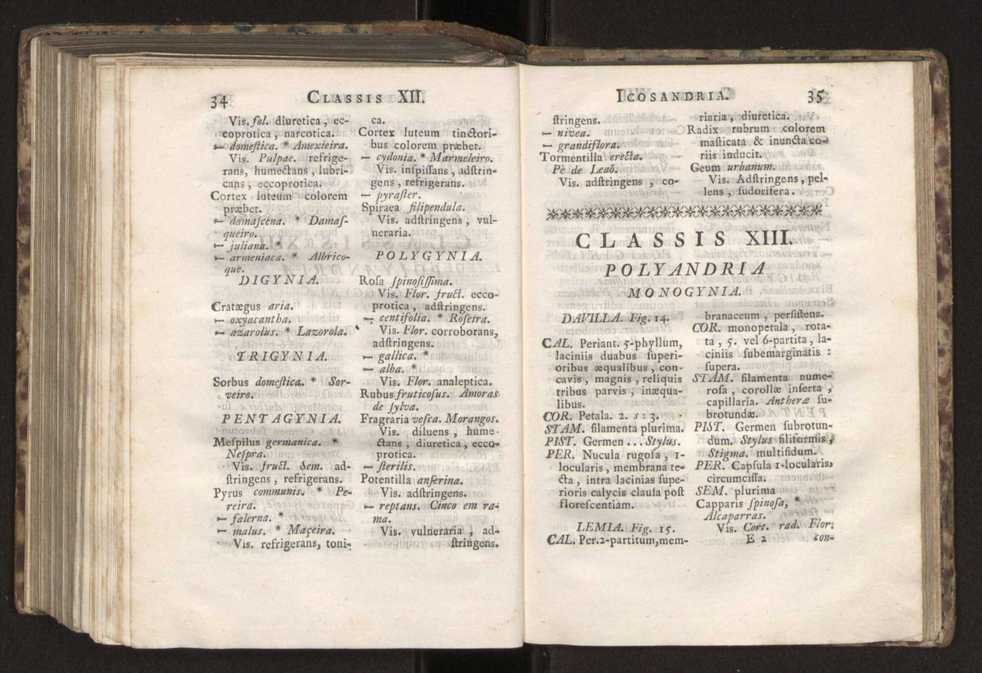 34 CLASSIS XII.
Vis. fol. diuretica, ec-
coprotica, narcotica.
— domeſtica. * Amexieira.
Vis. Pulpae. refrige-
rans, humectans, lubri-
cans, eccoprotica.
Cortex luteum colorem
præbet.
— damaſcena. * Damaſ-
queiro.
— juliana. *
— armeniaca. * Albrico-
que.
DIGYNIA.
Cratægus aria.
— oxyacantha.
— azarolus. * Lazorola.
TRIGYNIA.
Sorbus domeſtica. * Sor-
veiro.
PENTAGYNIA.
Meſpilus germanica. *
Neſpra.
Vis. fruct. Sem. ad-
ſtringens, refrigerans.
Pyrus communis. * Pe-
reira.
— falerna. *
— malus. * Maçeira.
Vis. refrigerans, toni-
ca.
Cortex luteum tinctori-
bus colorem præbet.
— cydonia. * Marmeleiro.
Vis. inſpiſſans, adſtrin-
gens, refrigerans.
— pyraſter.
Spiraea filipendula.
Vis. adſtringens, vul-
neraria.
POLYGYNIA.
Roſa ſpinoſiſſima.
Vis. Flor. fruct. ecco-
protica, adſtringens.
— centifolia. * Roſeira.
Vis. Flor. corroborans,
adſtringens.
— gallica. *
— alba. *
Vis. Flor. analeptica.
Rubus fruticoſus. Amoras
de ſylva.
Fragraria veſca. Morangos.
Vis. diluens, hume-
ctans, diuretica, ecco-
protica.
— ſterilis.
Potentilla anſerina.
Vis. adſtringens.
— reptans. Cinco em ra-
ma.
Vis. vulneraria, ad-
ſtringens.
ICOSANDRIA. 35
ſtringens.
— nivea.
— grandiflora.
Tormentilla erecta.
Pè de Leaõ.
Vis. adſtringens, co-
riaria, diuretica.
Radix rubrum colorem
maſticata & inuncta co-
riis inducit.
Geum urbanum.
Vis. Adſtringens, pel-
lens, ſudorifera.
CLASSIS XIII.
POLYANDRIA
MONOGYNIA.
DAVILLA. Fig. 14.
CAL. Periant. 5-phyllum,
laciniis duabus ſuperi-
oribus æqualibus, con-
cavis, magnis, reliquis
tribus parvis, inæqua-
libus.
COR. Petala. 2. s: 3.
STAM. filamenta plurima.
PIST. Germen ... Stylus.
PER. Nucula rugoſa, 1-
locularis, membrana te-
cta, intra lacinias ſupe-
rioris calycis clauſa poſt
floreſcentiam.
LEMIA. Fig. 15.
CAL. Per. 2-partitum, mem-
branaceum, perſiſtens.
COR. monopetala, rota-
ta, 5. vel 6-partita, la-
ciniis ſubemarginatis:
ſupera.
STAM. filamenta nume-
roſa, corollæ inſerta,
capillaria. Antheræ ſu-
brotundæ.
PIST. Germen ſubrotun-
dum. Stylus filiformis,
Stigma. multifidum.
PER. Capſula 1-locularis,
circumciſſa.
SEM. plurima
Capparis ſpinoſa, *
Alcaparras.
Vis. Cort. rad. Flor.
E 2 con-